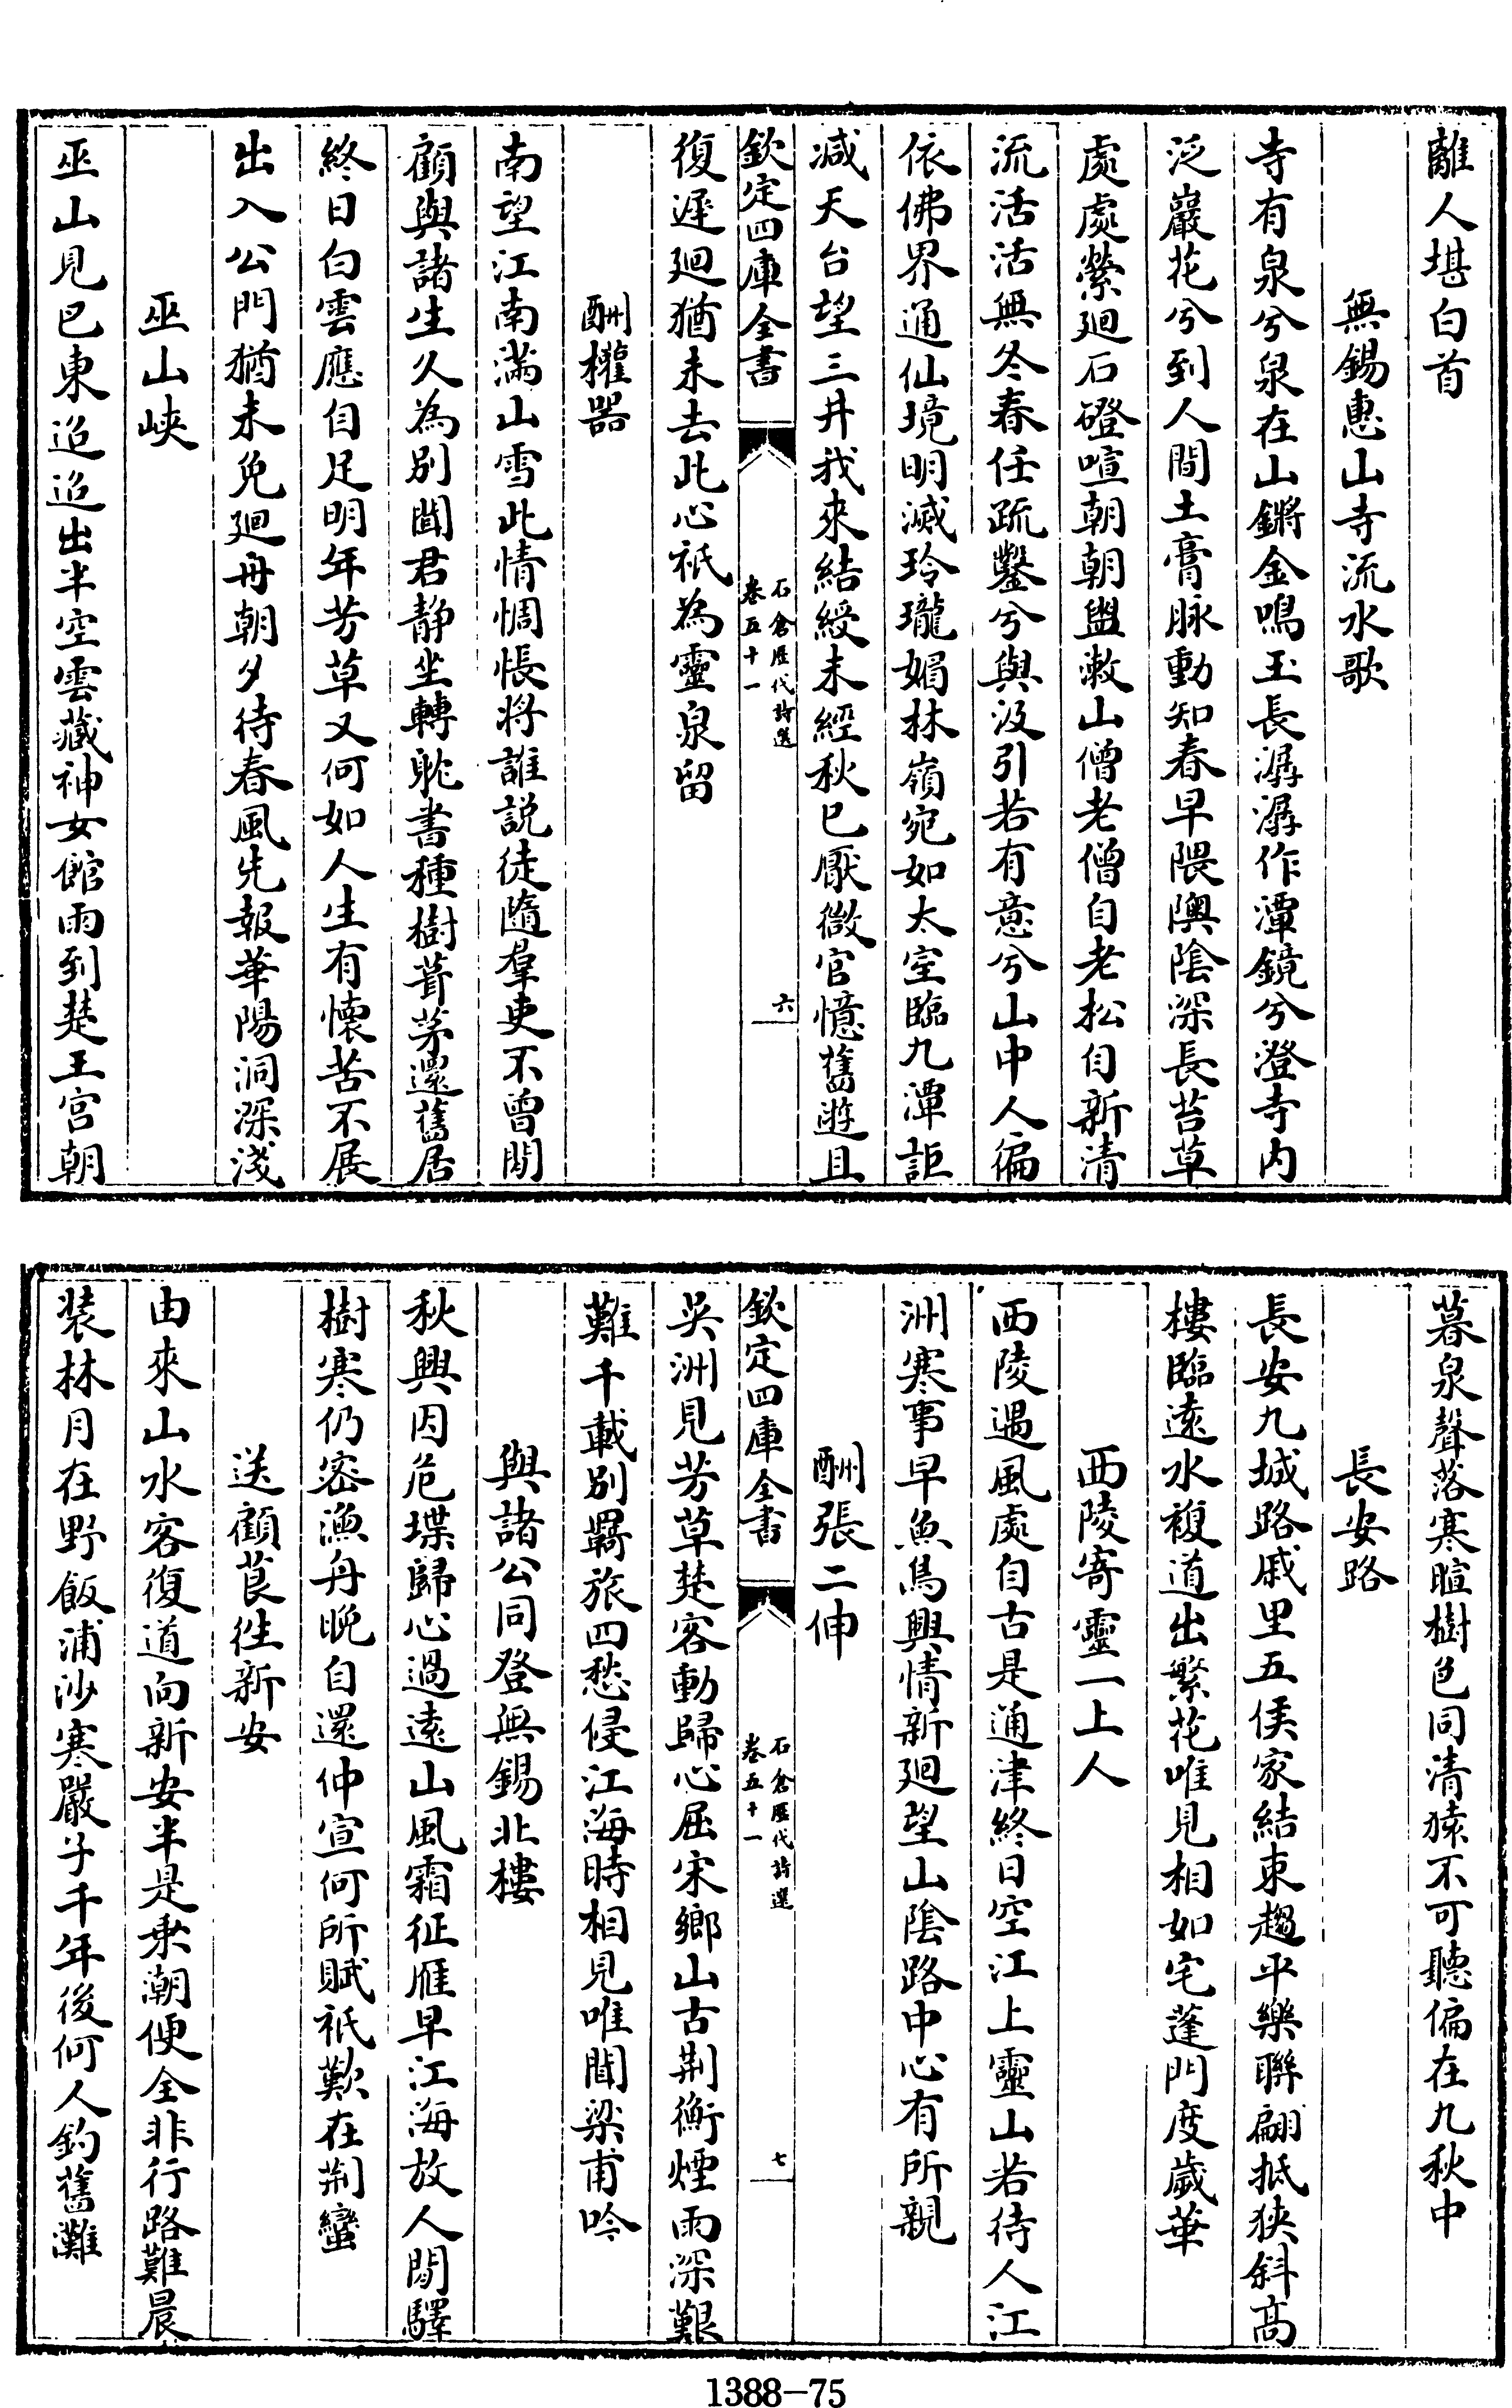 離人堪白首
無錫惠山寺流水歌
寺有泉兮泉在山鏘金鳴玉長潺潺作潭鏡兮澄寺内
泛巖花兮到人間土膏脉動知春早隈隩陰深長苔草
處處縈廻石磴喧朝朝盥漱山僧老僧自老松自新清
流活活無冬春任疏鑿兮與汲引若有意兮山中人偏
依佛界通仙境明滅玲瓏媚林嶺宛如太室臨九潭詎
减天台望三井我來結綬未經秋已厭微官憶舊遊且
欽定四庫全書
石倉歷代詩選
卷五十一
六
復遲廻猶未去此心祇為靈泉留
酬權器
南望江南滿山雪此情惆悵將誰説徒隨羣吏不曾閒
顧與諸生久為别聞君静坐轉躭書種樹葺茅還舊居
終日白雲應自足明年芳草又何如人生有懷苦不展
出入公門猶未免廻舟朝夕待春風先報華陽洞深淺
巫山峽
巫山見巴東迢迢出半空雲藏神女館雨到楚王宫朝
暮泉聲落寒暄樹色同清猿不可聽偏在九秋中
長安路
長安九城路戚里五侯家結束趨平樂聯翩抵狹斜高
樓臨遠水複道出繁花唯見相如宅蓬門度歲華
西陵寄靈一上人
西陵遇風處自古是通津終日空江上靈山若待人江
洲寒事早魚鳥興情新廻望山陰路中心有所親
酬張二伸
欽定四庫全書
石倉歷代詩選
卷五十一
七
吳洲見芳草楚客動歸心屈宋鄉山古荆衡煙雨深艱
難千載别羇旅四愁侵江海時相見唯聞梁甫吟
與諸公同登無錫北樓
秋興因危堞歸心過遠山風霜征雁早江海故人閒驛
樹寒仍密漁舟晚自還仲宣何所賦祇歎在荆蠻
送顧萇徃新安
由來山水客復道向新安半是乘潮便全非行路難晨
裝林月在野飯浦沙寒嚴子千年後何人釣舊灘
1388-75